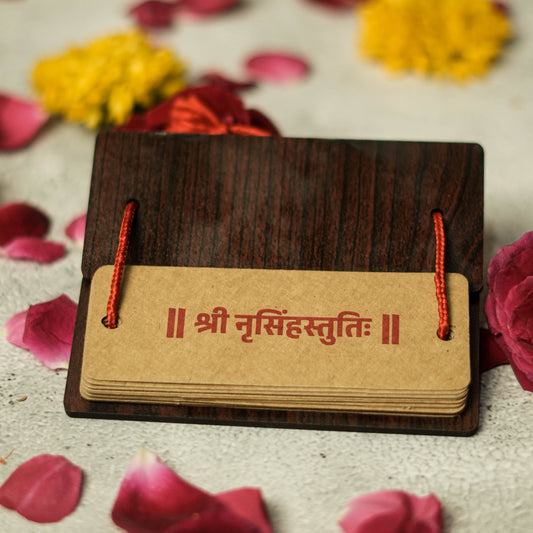 || श्री नृसिंहस्तुतिः ||